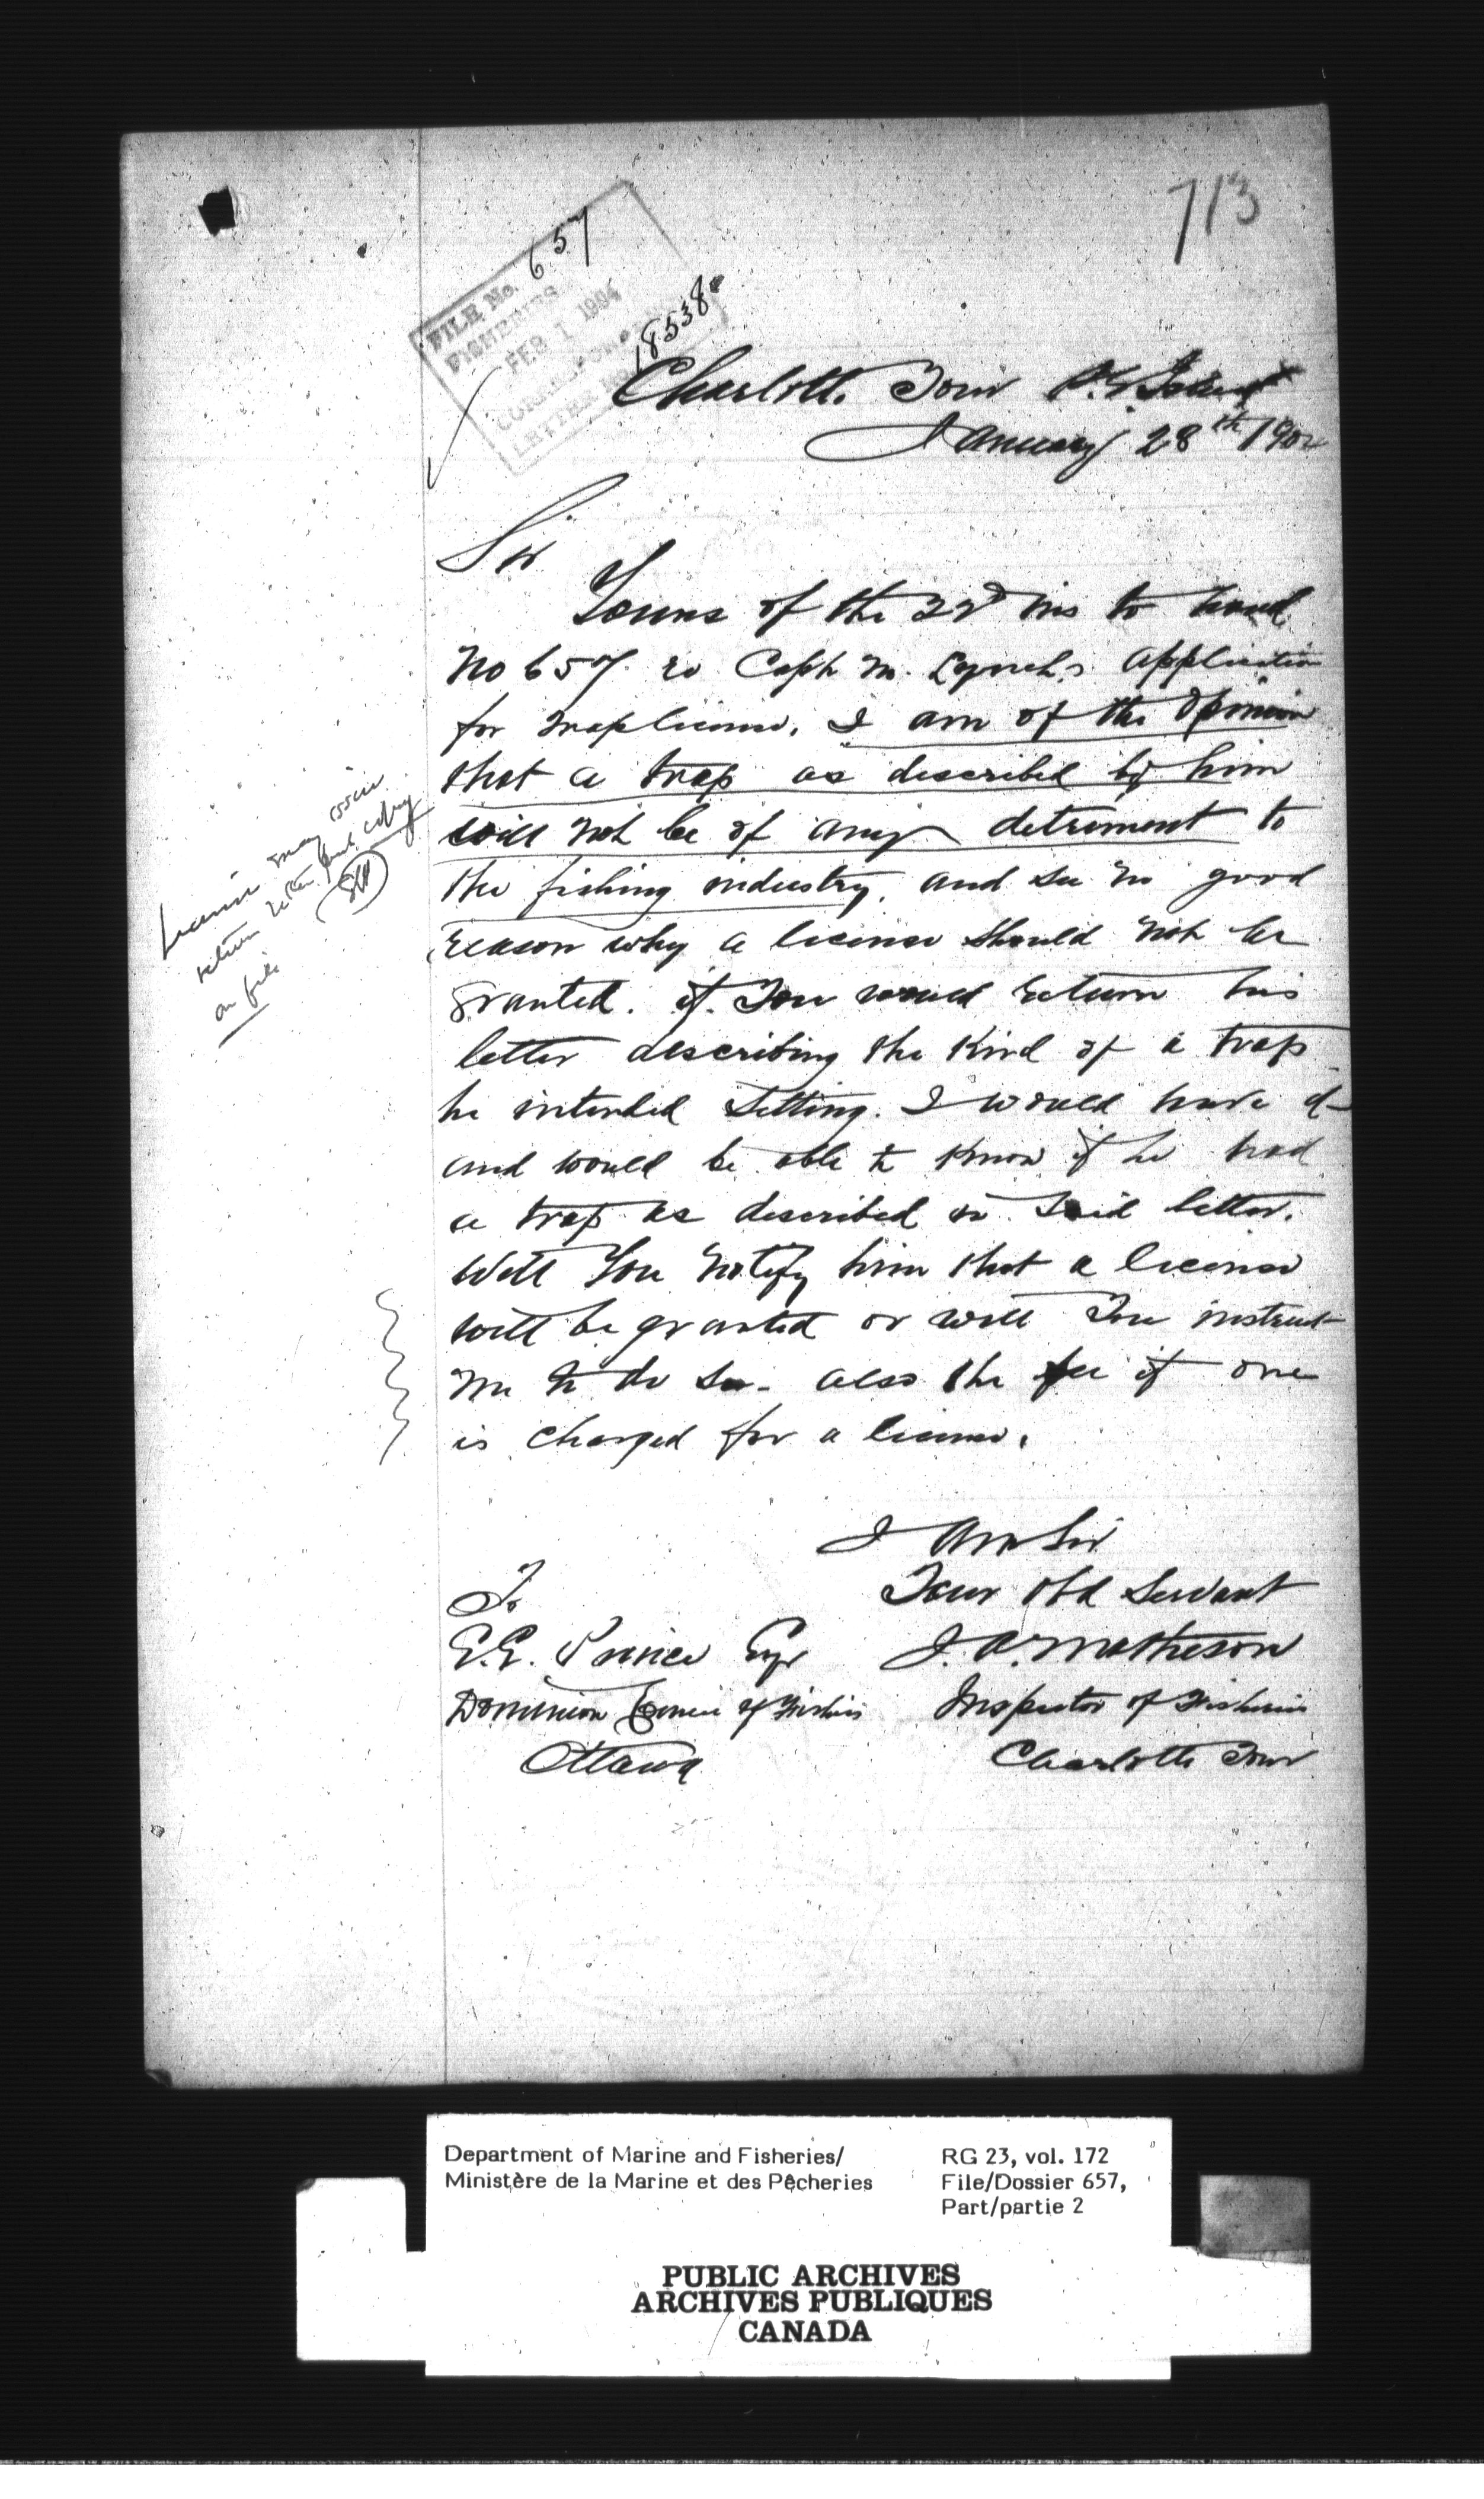 713
FILE No. 657
FISHERIES
FEB 1 1904
LETTER No. 18538
Charlotte Town P.E. Island
January 28th 1904
Sir
Yours of the 22d ins to hand
No 657. re Capt M. Lynch,s application
for trap license. I am of the opinion
that a trap as described by him
will not be of any detriment to
the fishing industry, and see no good
reason why a license should not be
granted. if You would return his
letter describing the Kind of a trap
he intended setting. I would have it
and would be able to Know if he had
a trap as described in said letter.
Will You notify him that a license
will be granted or will You instruct
me to do so. also the fee if one
is charged for a license.
License may issue
return letter copy
on file
I Am Sir
Your Obd Servant
J.A. Matheson
Inspector of Fisheries
Charlotte Town
To
E.E. Prince Esqr
Dominion Commr of Fisheries
Ottawa
Department of Marine and Fisheries/
Ministère de la Marine et des Pêcheries
RG 23, vol. 172
File/Dossier 657,
Part/partie 2
PUBLIC ARCHIVES
ARCHIVES PUBLIQUES
CANADA